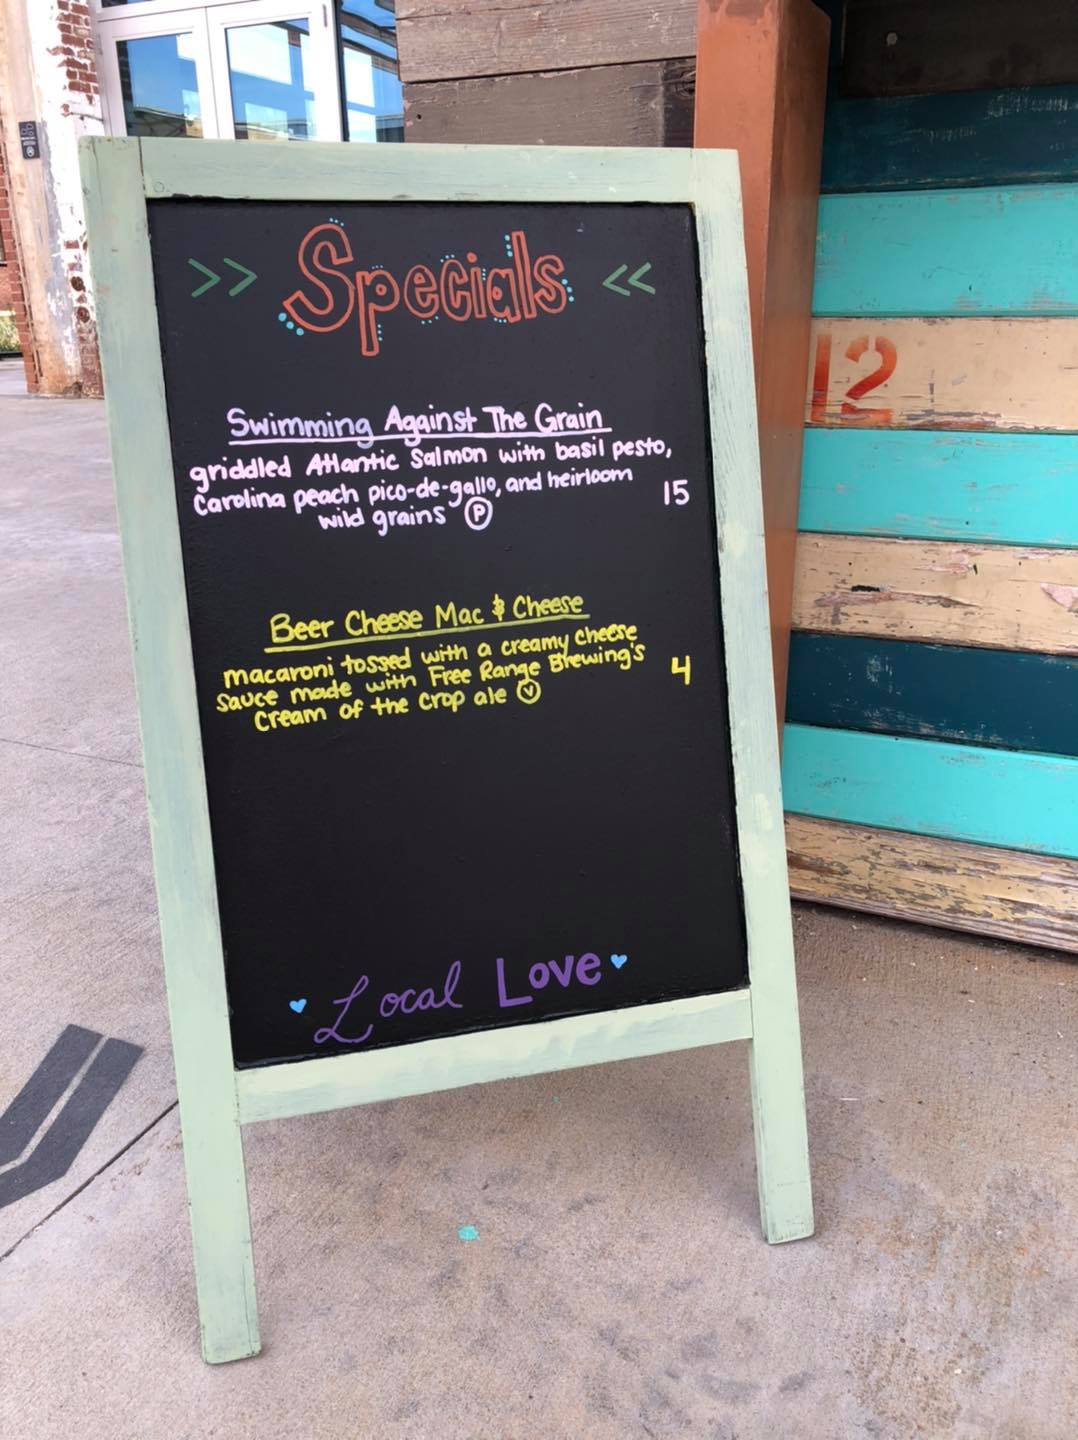 >> Specials <<
Swimming Against The Grain
griddled Atlantic Salmon with basil pesto,
Carolina peach pico-de-gallo, and heirloom 15
wild grains P
Beer Cheese Mac & Cheese
macaroni tossed with a creamy cheese
sauce made with Free Range Brewing's 4
Cream of the Crop ale V
Local Love
12